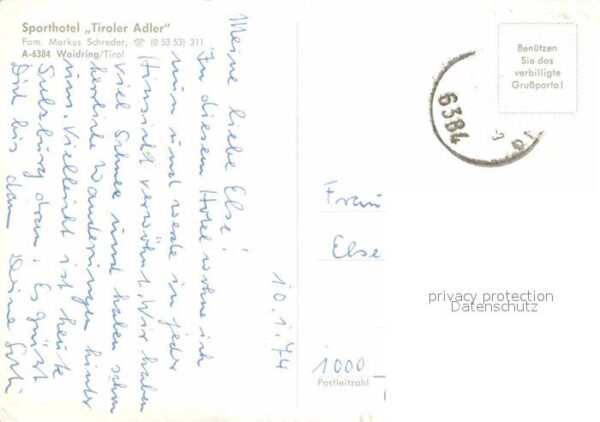 Sporthotel „Tiroler Adler"
Fam. Markus Schreder, ☏ (0 53 53) 311
A-6384 Waidring/Tirol
10.1.74
Meine liebe Else!
In diesem Hotel wohne ich
nun und werde in jeder
Hinsicht verwöhnt. Wir haben
viel Schnee und haben schon
herrliche Wanderungen hinter
uns. Vielleicht ist heute
Salzburg dran. Es grüßt
Dich bis dann Deine
Benützen
Sie das
verbilligte
Grußporto!
6384
Frau
Else
privacy protection
Datenschutz
1000
Postleitzahl